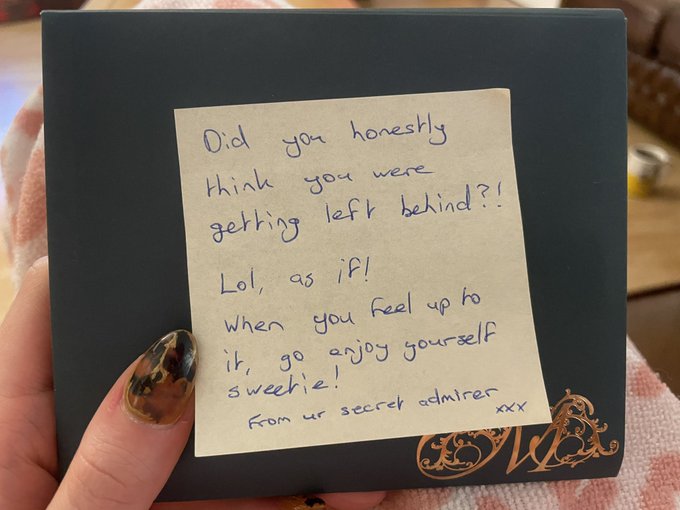 Did you honestly
think you were
getting left behind?!
Lol, as if!
When you feel up to
it, go enjoy yourself
sweetie!
From ur secret admirer xxx